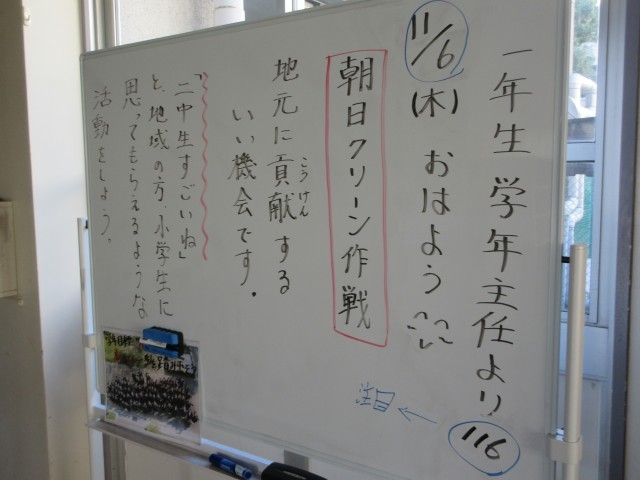 一年生 学年主任より
116
11/6
(木) おはよう
朝日クリーン作戦
地元に貢献する
こうけん
いい機会です。
「二中生すごいね」
と、地域の方、小学生に
思ってもらえるような
活動をしよう。
注目